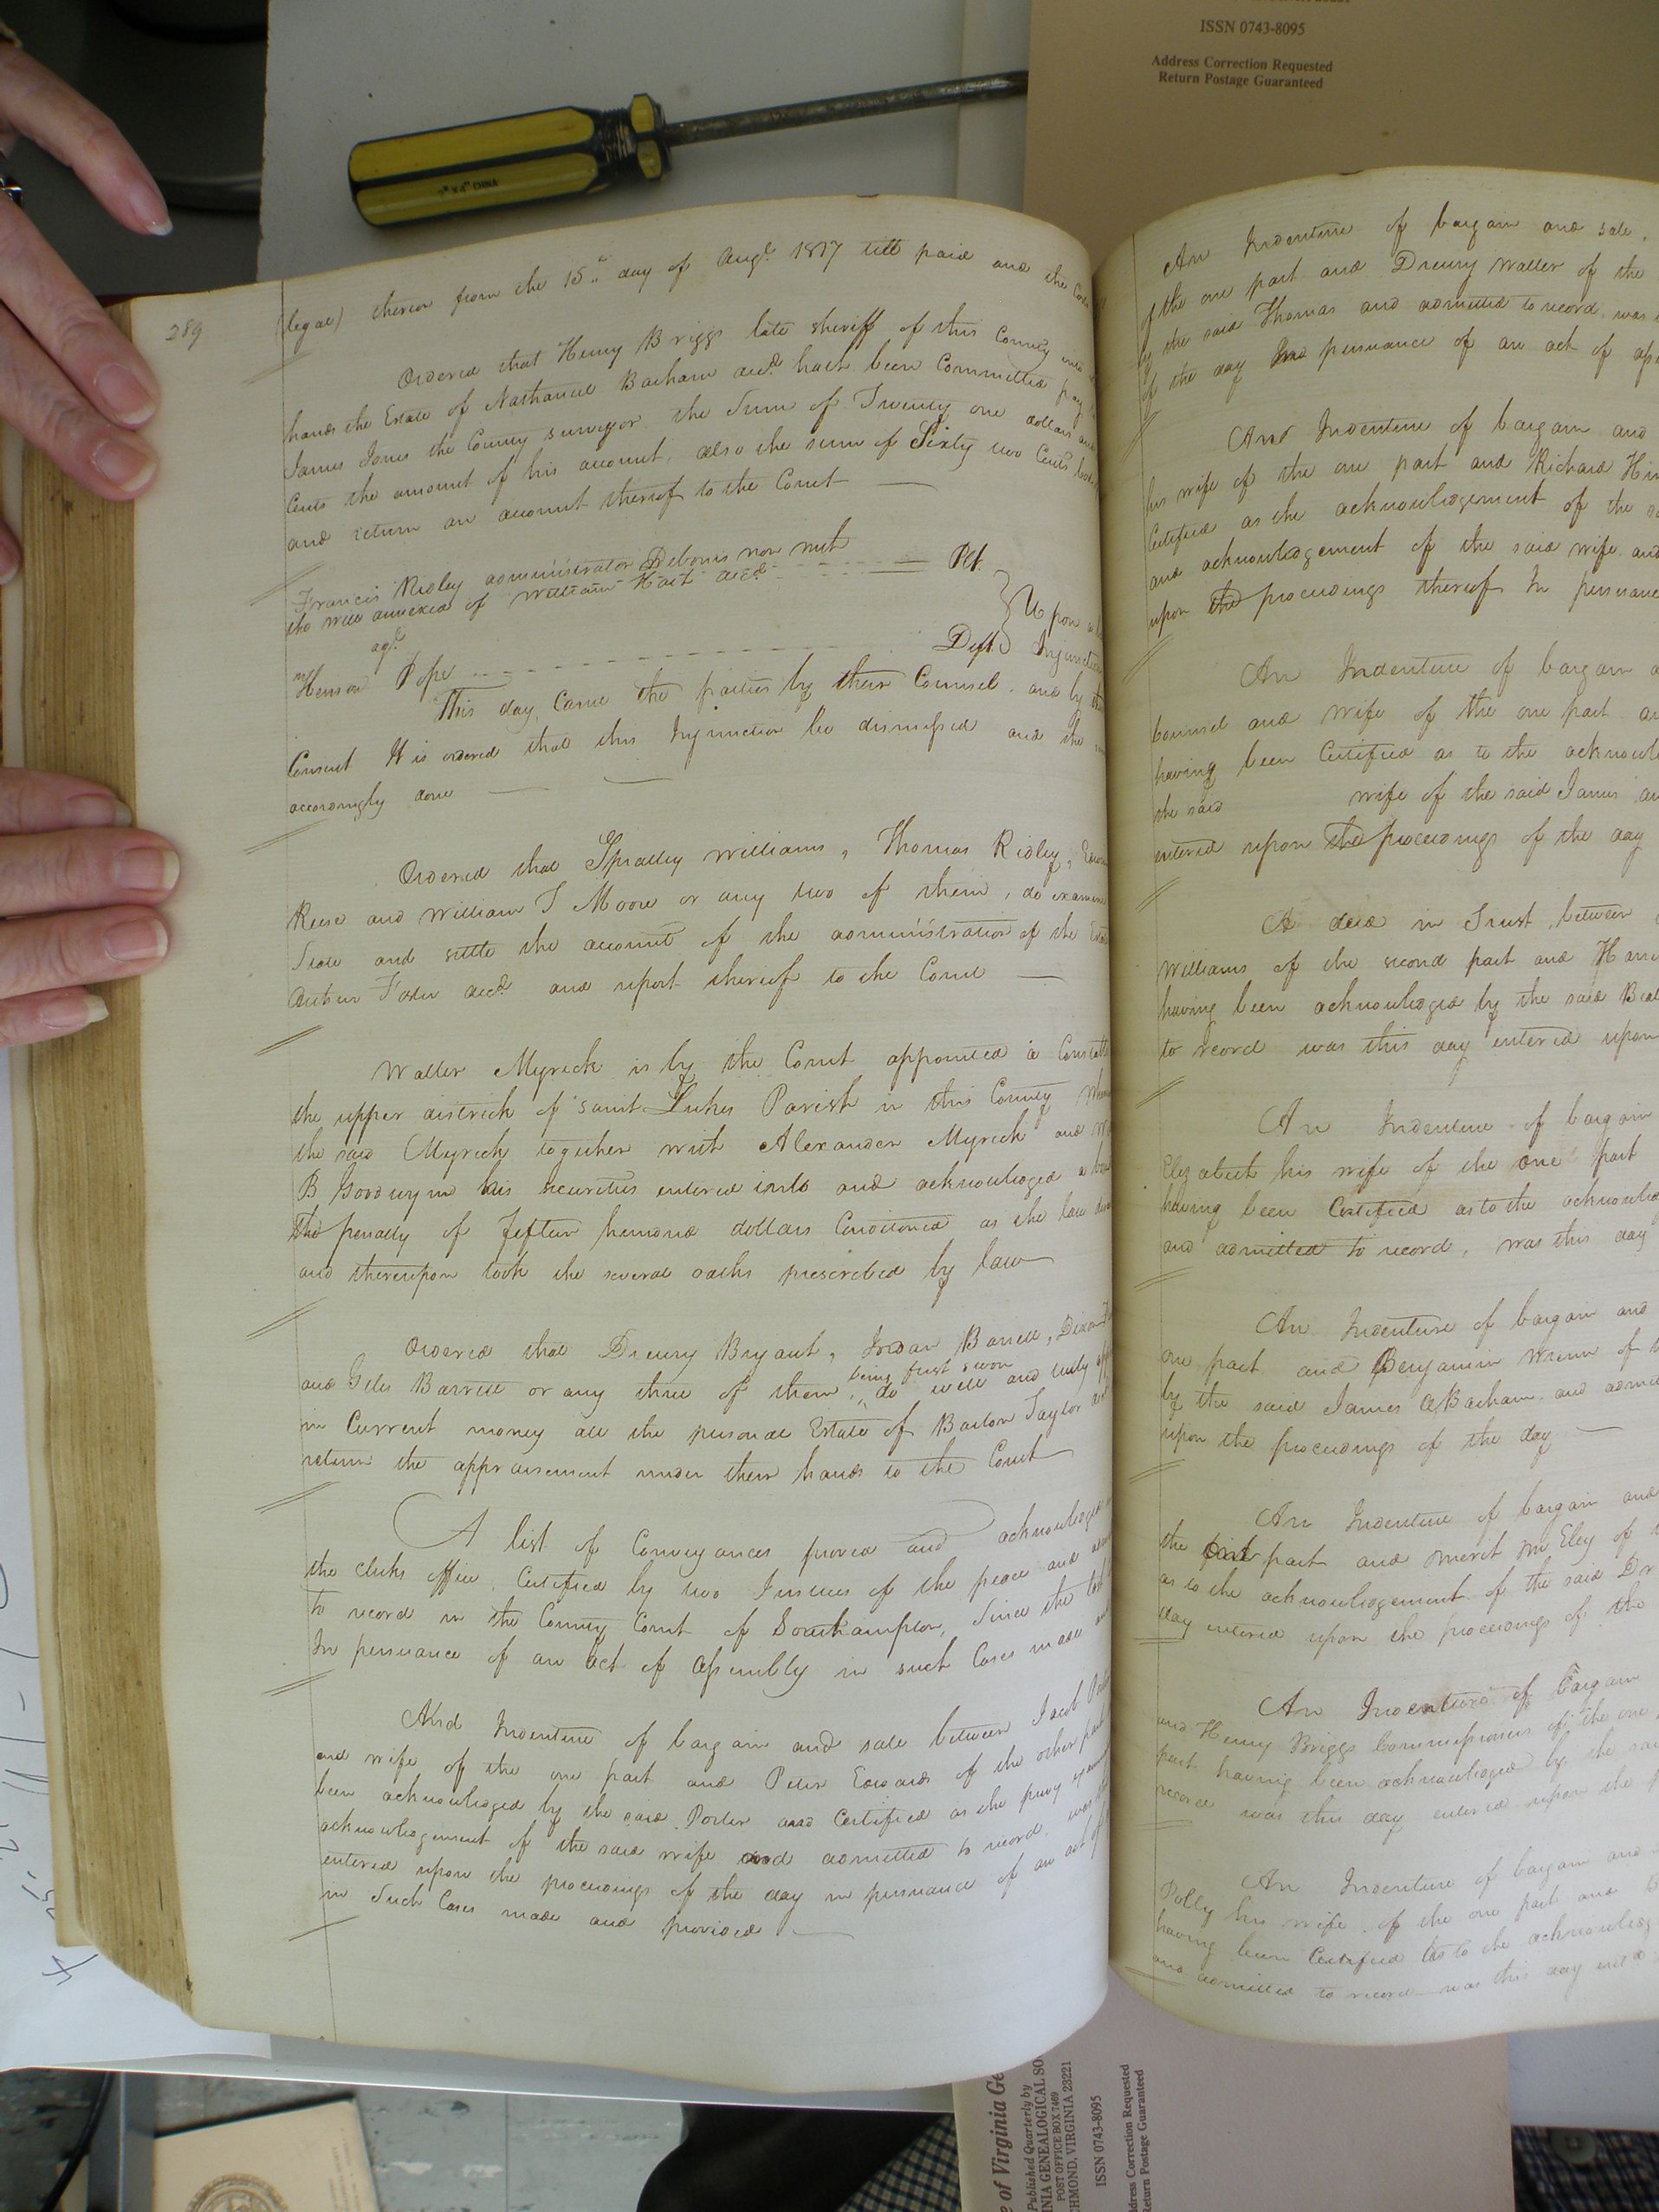 ISSN 0743-8095
Address Correction Requested
Return Postage Guaranteed
CHINA
289
legal) thereon from the 15th day of Augt 1817 till paid and the Costs
Ordered that Henry Briggs late sheriff of this County into
hands the Estate of Nathaniel Barham decd hath been Committed pay
James Jones the County surveyor the Sum of Twenty one dollars and
Cents the amount of his account, also the sum of Sixty two Cents
and return an account thereof to the Court
Francis Ridley administrator Debonis non with
the will annexed of William Hart decd Plt.
agt. Upon
Henson Pope Deft Injunction
This day Came the parties by their Counsel, and by
Consent It is ordered that this Injunction be dismissed and the
accordingly done
Ordered that Spratley Williams, Thomas Ridley,
Reese and William T Moore or any two of them, do examine
State and settle the account of the administration of the Estate
Arthur Foster decd and report thereof to the Court
Walter Myrick is by the Court appointed a Constable
the upper district of saint Lukes Parish in this County
the said Myrick together with Alexander Myrick and
B Goodwyn his securities entered into and acknowledged a
the penalty of fifteen hundred dollars Conditioned as the law
and thereupon took the several oaths prescribed by law
Ordered that Drewry Bryant, Jordan Barrett,
being first sworn
and Giles Barrett or any three of them, do well and truly
in Current money all the personal Estate of Barton Taylor
return the appraisement under their hands to the Court
A list of Conveyances proved and acknowledged
the clerks office, Certified by two Justices of the peace and
to record in the County Court of Southampton, Since the
In persuance of an act of assembly in such Cases made
And Indenture of bargain and sale between Jacob
and wife of the one part and Peter Edwards of the other part
been acknowledged by the said Porter and Certified as the privy
acknowledgement of the said wife and admitted to record, was
entered upon the proceedings of the day in persuance of an act of
in Such Cases made and provided
An Indenture of bargain and sale,
of the one part and Drewry Waller of the
by the said Thomas and admitted to record, was
of the day In persuance of an act of
And Indenture of bargain and
his wife of the one part and Richard
Certified as the acknowledgement of the
and acknowledgement of the said wife and
upon the proceedings thereof In
An Indenture of bargain
Counsel and wife of the one part
having been Certified as to the
the said wife of the said James
entered upon the proceedings of the day
A deed in Trust, between
Williams of the second part and
having been acknowledged by the said
to record was this day entered upon
An Indenture of bargain
Elizabeth his wife of the one part
having been Certified as to the
and admitted to record, was this day
An Indenture of bargain and
one part and Benjamin Wrenn of
by the said James Barham and
upon the proceedings of the day
An Indenture of bargain and
the one part and Eley of
as to the acknowledgement of the said
day entered upon the proceedings of the
An Indenture of bargain
and Henry Briggs Commissioners of the one
part having been acknowledged by the said
record was this day entered upon the
An Indenture of bargain and
Polly his wife, of the one part and
having been Certified as to the
and admitted to record was this day
of Virginia
Published Quarterly by
GENEALOGICAL
POST OFFICE BOX 7469
VIRGINIA 23221
ISSN 0743-8095
Address Correction Requested
Return Postage Guaranteed